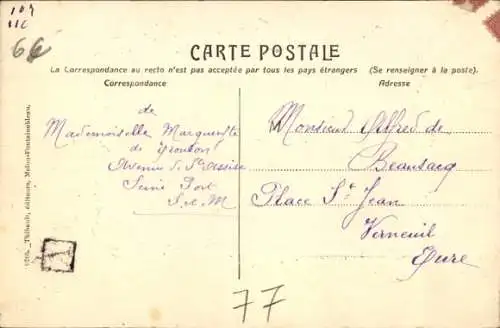 107
116
66
CARTE POSTALE
La Correspondance au recto n'est pas acceptée par tous les pays étrangers (Se renseigner à la poste).
Correspondance
Adresse
de
Mademoiselle Marguerite
de
Avenue de Ste Assise
Seine Port
S. et M
Monsieur Alfred de
Beausacq
Place St Jean
Verneuil
Eure
Thibault, éditeurs, Melun-Fontainebleau.
A
77